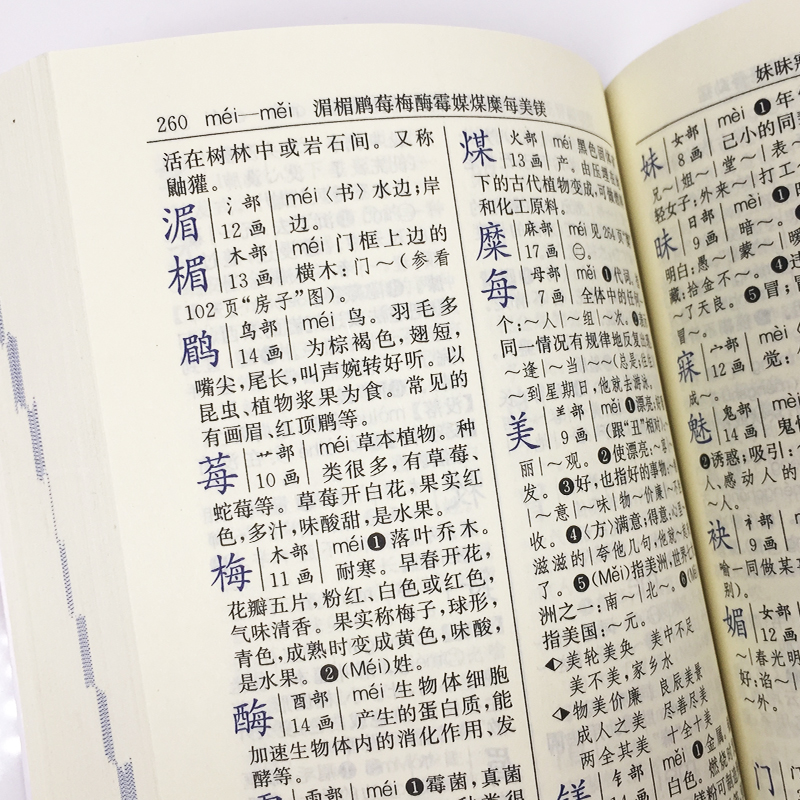 260 méi—měi 湄楣鹛莓梅酶霉媒煤糜每美镁
活在树林中或岩石间。又称
鼬獾。
湄 氵部 12画 méi〈书〉水边；岸
边。
楣 木部 13画 méi 门框上边的
横木：门～（参看
102页“房子”图）。
鹛 鸟部 14画 méi 鸟。羽毛多
为棕褐色，翅短，
嘴尖，尾长，叫声婉转好听。以
昆虫、植物浆果为食。常见的
有画眉、红顶鹛等。
莓 艹部 10画 méi 草本植物。种
类很多，有草莓、
蛇莓等。草莓开白花，果实红
色，多汁，味酸甜，是水果。
梅 木部 11画 méi ❶落叶乔木。
耐寒。早春开花，
花瓣五片，粉红、白色或红色，
气味清香。果实称梅子，球形，
青色，成熟时变成黄色，味酸，
是水果。❷(Méi)姓。
酶 酉部 14画 méi 生物体细胞
产生的蛋白质，能
加速生物体内的消化作用、发
酵等。
雨部 méi ❶霉菌，真菌
煤 火部 13画 méi 黑色
产。由压
下的古代植物变成，可
和化工原料。
糜 麻部 17画 méi 见264页
㊀。
每 母部 7画 měi ❶代词。
全体中的任
个：～人｜～组｜～次。❷
同一情况有规律地反复
～逢｜～当｜～～（总是；往往
～到星期日，他就去游泳。
美 𦍌部 9画 měi ❶漂亮；
（跟“丑”相对）
丽｜～观。❷使漂亮：
发。❸好，也指好的事物：
～意｜～味｜物～价廉｜
收。❹〈方〉满意；得意：心里
滋滋的｜夸他几句，他就～
了。❺(Měi)指美洲，世界七
洲之一：南～｜北～。❻
指美国：～元。
美轮美奂 美中不足
美不美，家乡水
物美价廉 良辰美景
成人之美 尽善尽美
两全其美 十全十美
镁 钅部 měi ❶金属。
白色。燃烧
妹昧
妹 女部 8画 mèi ❶年
己小的同
兄～｜姐～｜堂～｜表～
轻女子：外来～｜打工～
昧 日部 9画 mèi ❶
暗～。❷
明白：愚～｜蒙～｜暧
藏：拾金不～。❹违
～了天良。❺冒；冒
冒～。
寐 宀部 12画 mèi
觉：
成～。
魅 鬼部 14画 mèi
鬼怪
❷诱惑；吸引：
人、感动人的
～人。
袂 衤部 9画 mèi
喻一同做某
别）。
媚 女部 12画 mèi
～｜春光明
好：谄～｜
～外。
门